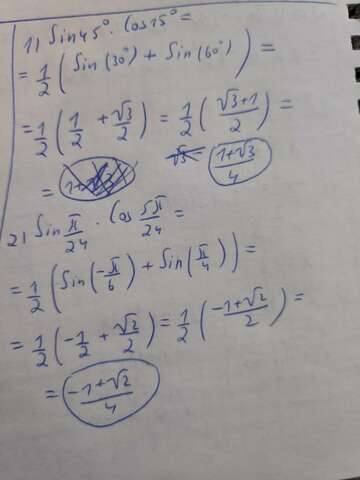 1) Sin45° · Cos15° =
= 1/2 (Sin(30°) + Sin(60°)) =
= 1/2 (1/2 + √3/2) = 1/2 (√3+1/2) =
= (1+√3)/4
2) Sin π/24 · Cos 5π/24 =
= 1/2 (Sin(-π/6) + Sin(π/4)) =
= 1/2 (-1/2 + √2/2) = 1/2 (-1+√2/2) =
= (-1+√2)/4